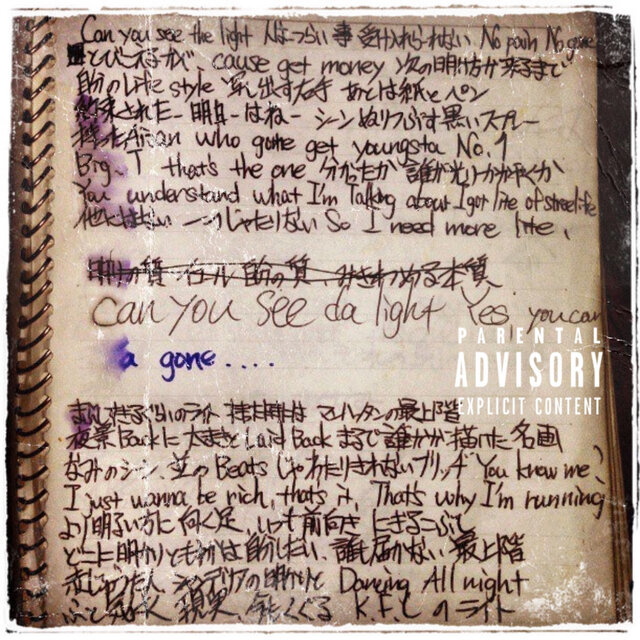 Can you see the light 人はつらい事 受け入れられない No pain No gone
とびこえるかべ cause get money 次の明け方が来るまで
自分のLife style 写し出す右手 あとは紙とペン
約束された一明日一はねー シーンぬりつぶす黒いスプレー
Asian who gone get youngsta No.1
Big T that's the one 分かったか 誰が光りかがやくか
You understand what I'm Talking about I got lite of streelife
他にはない 一つじゃたりない So I need more lite,
の質 イコール 自分の質 みきわめる本質
can you See da light Yes you can
a gone....
PARENTAL
ADVISORY
EXPLICIT CONTENT
ライト マンハッタンの最上階
夜景Backに大きく Laid Back まるで誰かが描いた名画
なみのシーン、並のBeats じゃわたりきれないブリッヂ You know me?
I just wanna be rich, that's it, That's why I'm running
より明るい方に向く足、いつも前向き にぎるこぶし
自分しだい、誰も届かない最上階
シャンデリアの明かりと Dancing All night
現実 K.F.Cのライト